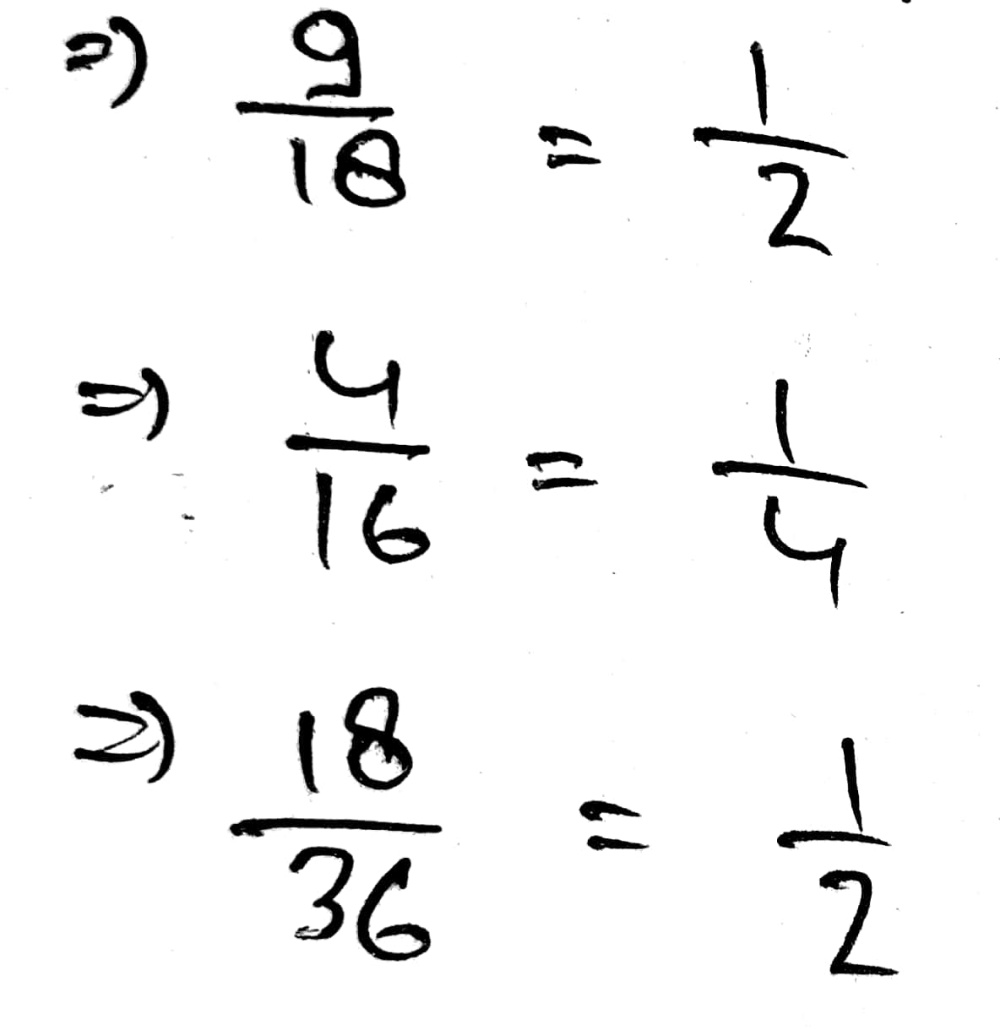 ⇒ 9/18 = 1/2
⇒ 4/16 = 1/4
⇒ 18/36 = 1/2